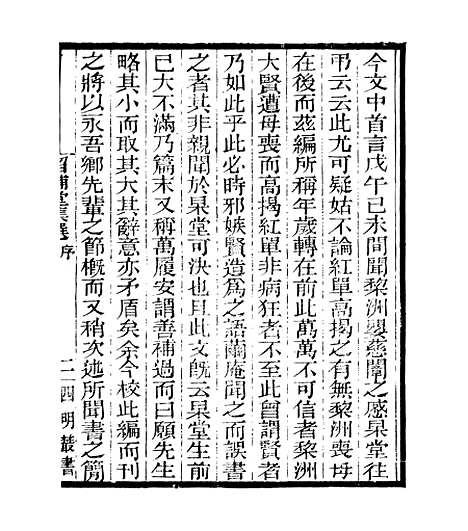 今文中首言戊午己未間聞黎洲嬰慈闈之感杲堂往
弔云云此尤可疑姑不論紅單高揭之有無黎洲喪母
在後而茲編所稱年歲轉在前此萬萬不可信者黎洲
大賢遭母喪而高揭紅單非病狂者不至此曾謂賢者
乃如此乎此必時邪嫉賢造為之語蘭庵聞之而誤書
之者其非親聞於杲堂可決也且此文旣云杲堂生前
已大不滿乃篇末又稱萬履安謂善補過而曰願先生
略其小而取其大其辭意亦矛盾矣余今校此編而刊
之將以永吾鄉先輩之節槪而又稍次述所聞書之簡
序 二 四明叢書